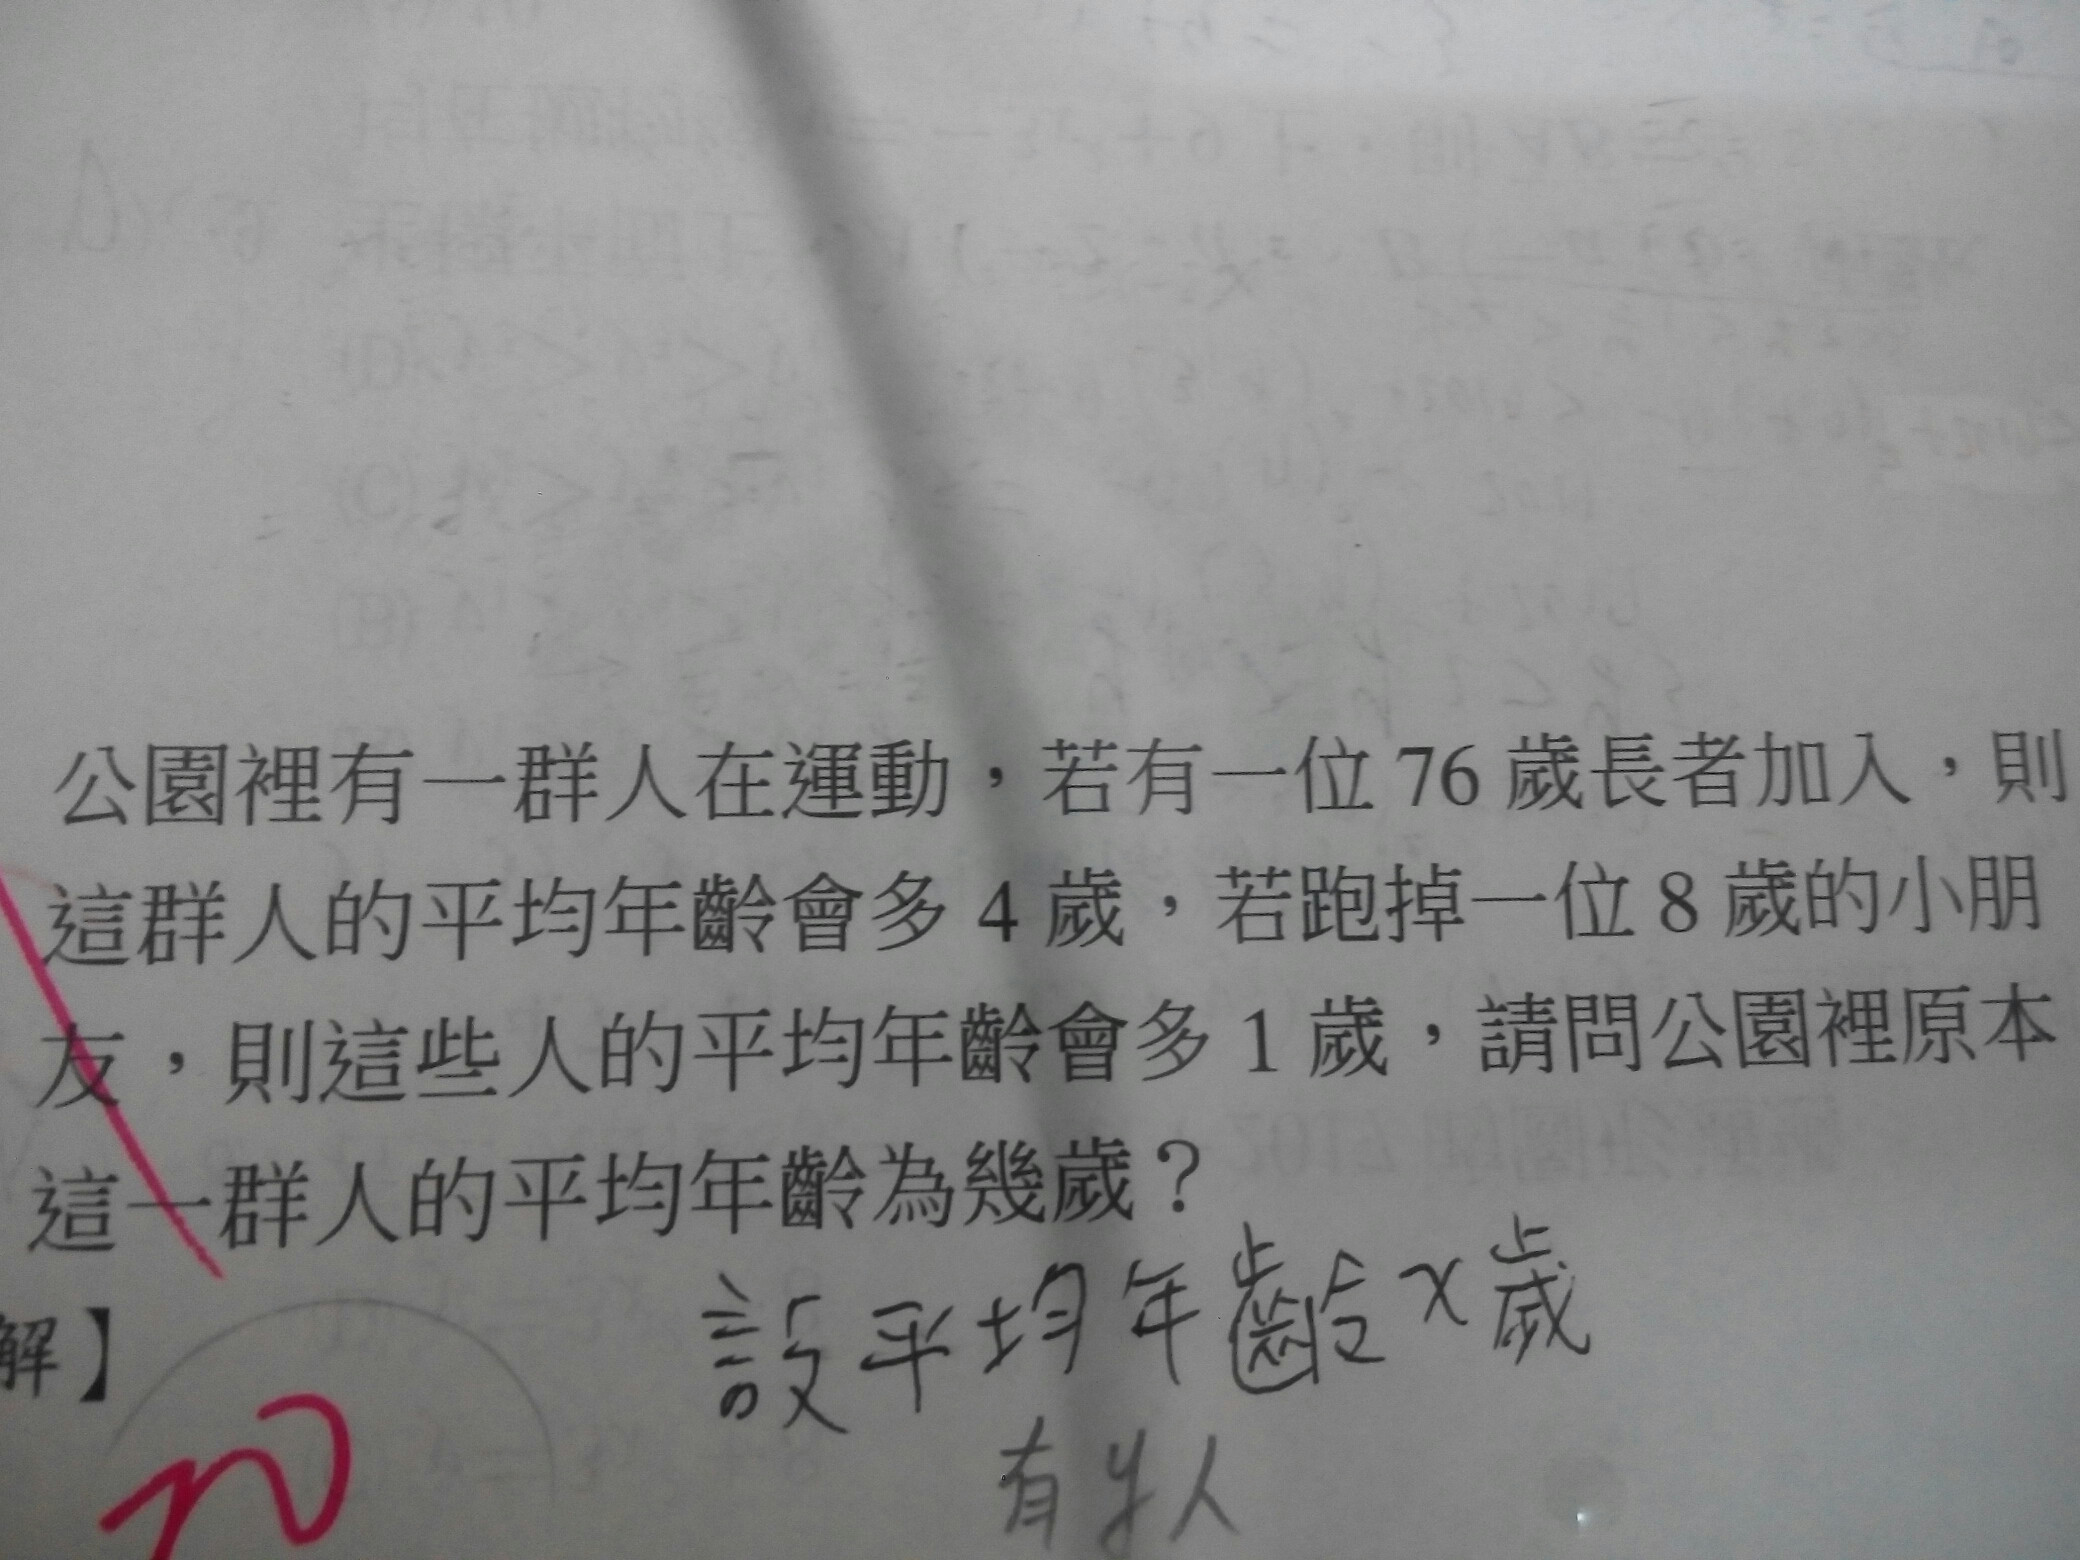 公園裡有一群人在運動，若有一位 76 歲長者加入，則
這群人的平均年齡會多 4 歲，若跑掉一位 8 歲的小朋
友，則這些人的平均年齡會多 1 歲，請問公園裡原本
這一群人的平均年齡為幾歲？
解】
設平均年齡x歲
有y人